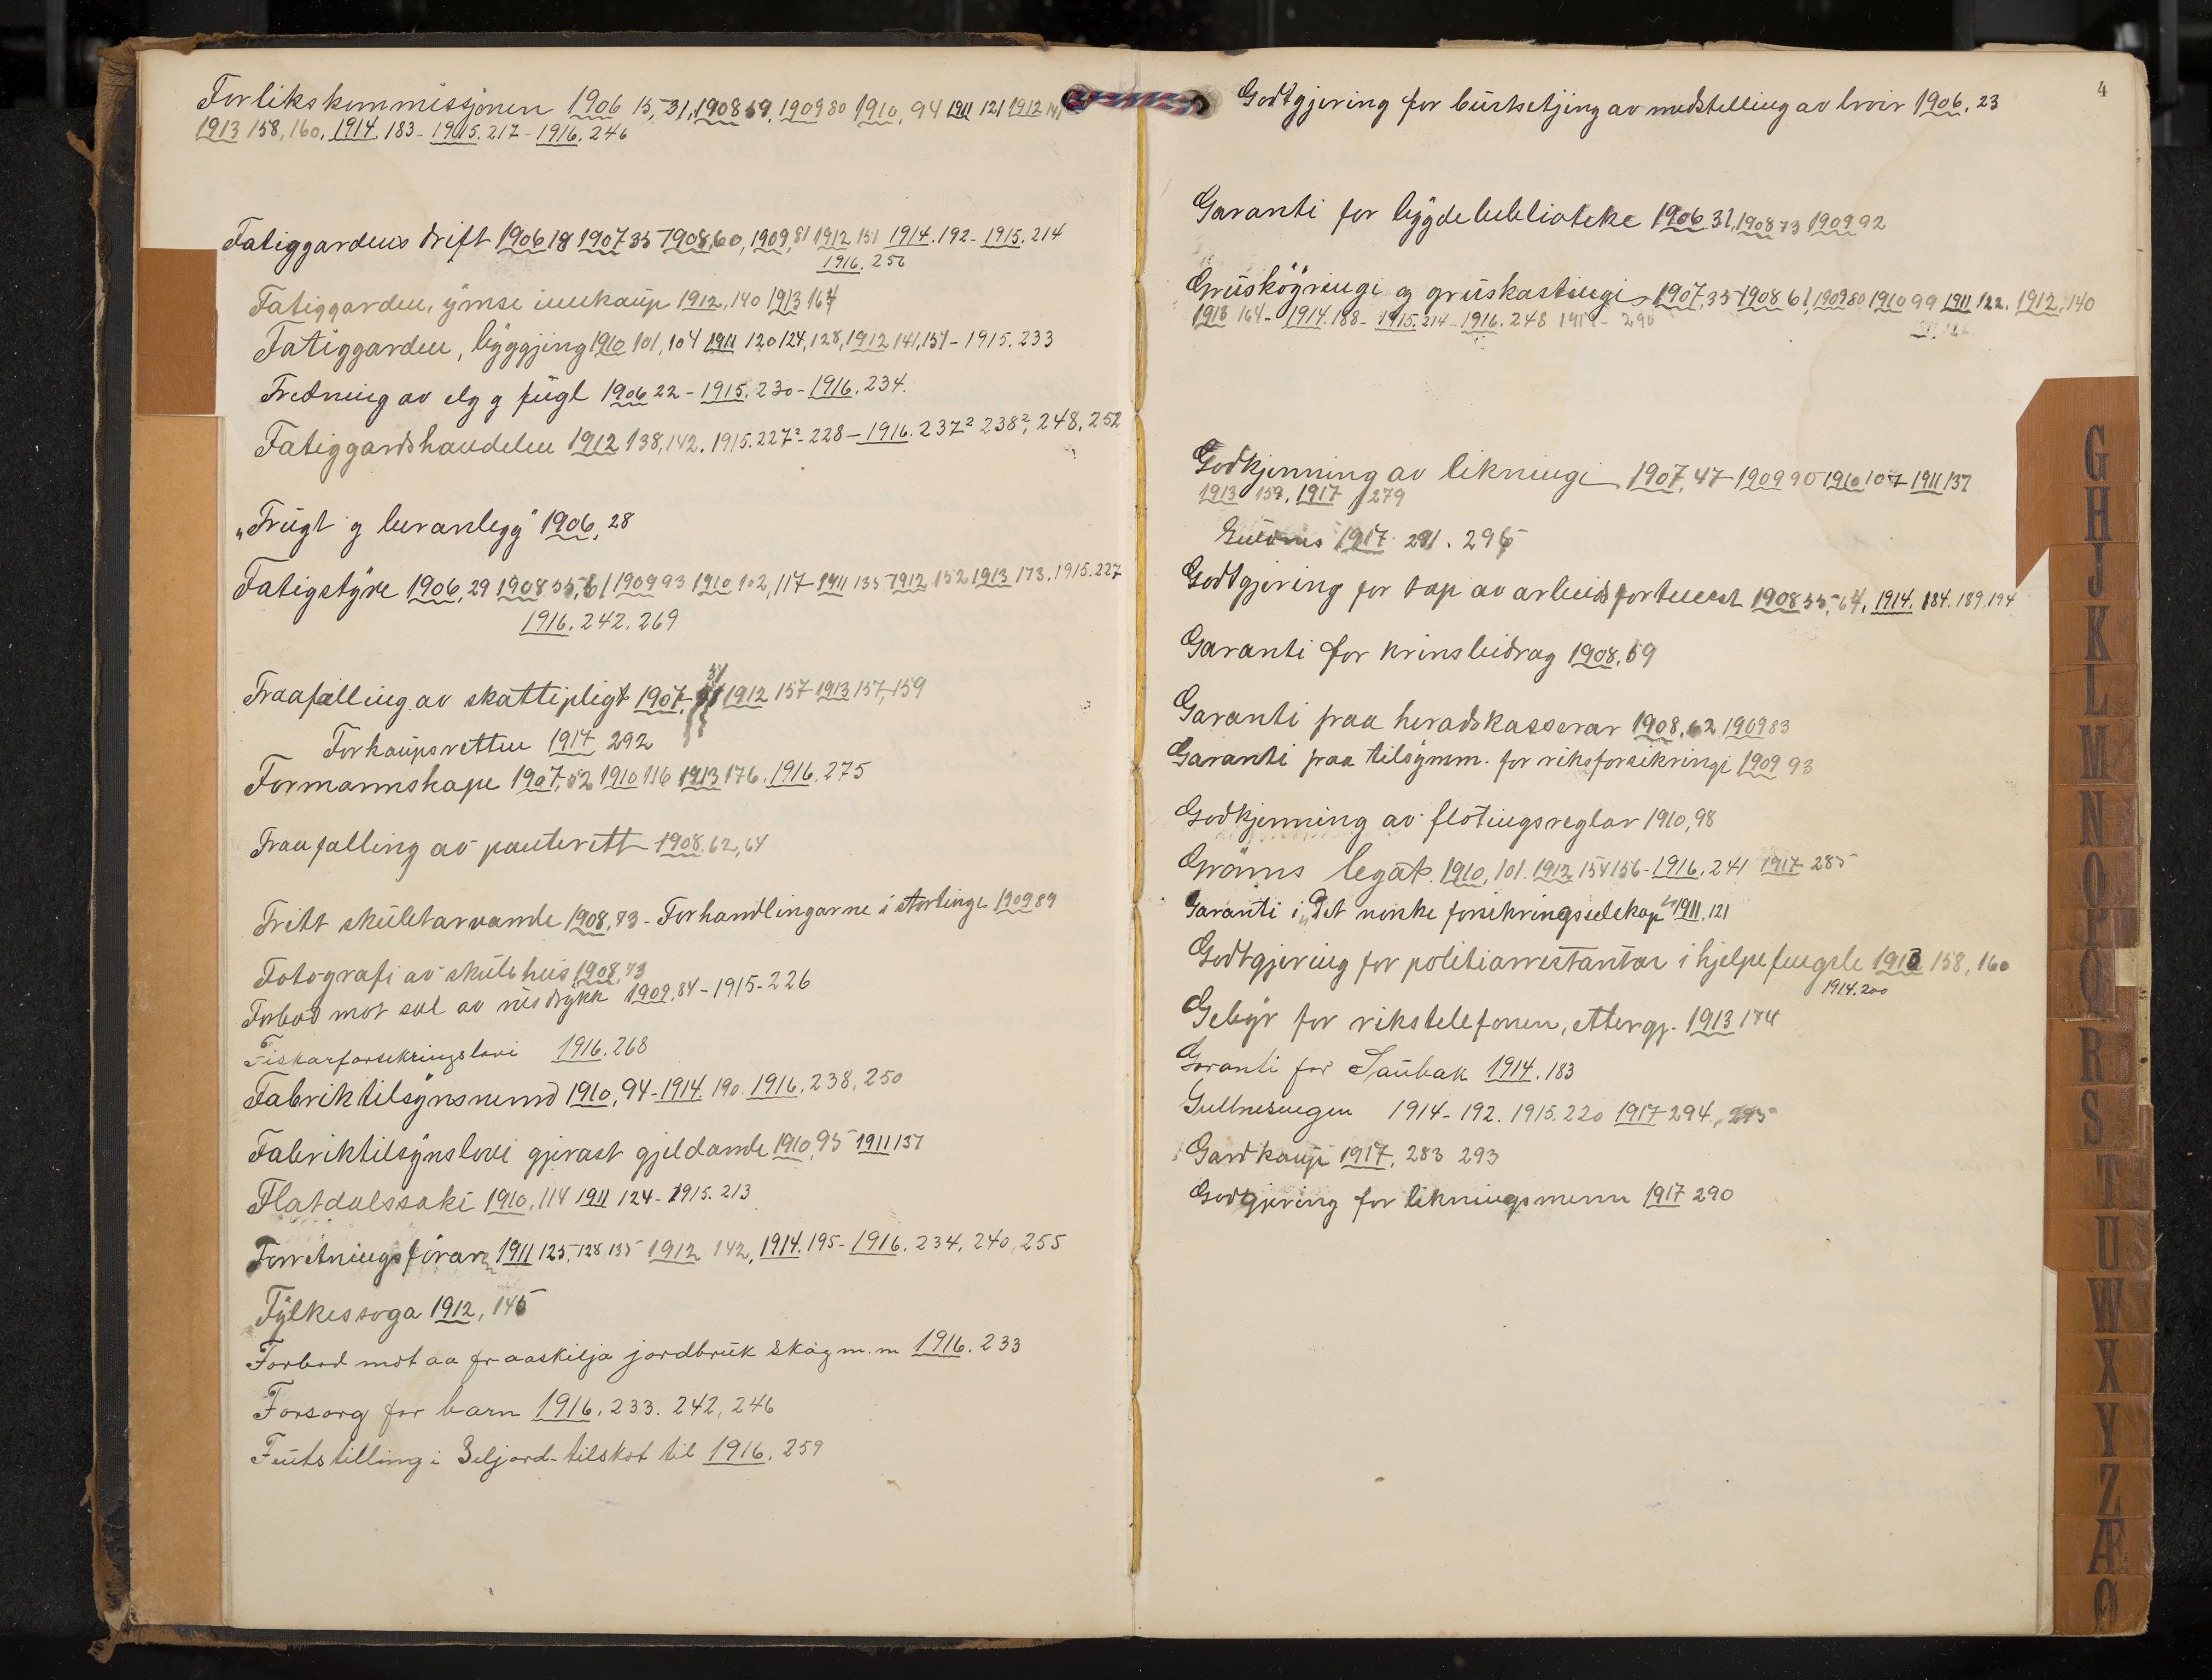 Forlikskommissjonen 1906 15, 31, 1908 59, 1909 80 1910, 94 1911 121 1912 141
1913 158, 160, 1914. 183 - 1915. 217 - 1916. 246
Fatiggardens drift 1906 18 1907 35 1908, 60, 1909, 81 1912 151 1914. 192 - 1915. 214
1916. 256
Fatiggarden, ymse innkaup 1912, 140 1913 164
Fatiggarden, byggjing 1910 101, 104 1911 120 124, 128, 1912 141, 151 - 1915. 233
Fredning av elg g fugl 1906 22 - 1915. 230 - 1916. 234.
Fatiggardshandelen 1912 138, 142. 1915. 227² - 228 - 1916. 237² 238², 248, 252
"Frugt g beranlegg" 1906, 28
Fatigstyre 1906, 29 1908 55, 61 1909 93 1910 102, 117 - 1911 135 1912 152 1913 173. 1915. 227
1916. 242. 269
Fraafalling av skattipligt 1907, 51 1912 157 1913 157, 159
Forkaupsretten 1917 292
Formannskape 1907, 52 1910 116 1913 176. 1916. 275
Fraafalling av panterett 1908, 62, 64
Fritt skuletarvande 1908, 73 - Forhandlingarne i stortinge 1909 89
Fotografi av skulehus 1908, 73
Forbod mot sal av rusdrykk 1909, 84 - 1915 - 226
Fiskarforsekringslovi 1916. 268
Fabriktilsynsnemnd 1910, 94 - 1914. 190. 1916. 238, 250
Fabriktilsynslovi gjerast gjeldande 1910, 95 1911 137
Flatdalssaki 1910, 114 1911 124 - 1915. 213
Forretningsførar 1911 125, 128, 135 1912 142, 1914. 195 - 1916. 234, 240, 255
Fylkessoga 1912, 145
Forbod mot aa fraaskilja jordbruk skog m.m 1916. 233
Forsorg for barn 1916. 233. 242, 246
Futstilling i Seljord - tilskot til 1916. 259
4
Godtgjering for burtsetjing av nedstelling av kvoir 1906, 23
Garanti for bygdebiblioteke 1906 31, 1908 73 1909 92
Gruskøyringi g gruskastingi 1907, 35 1908 61, 1909 80 1910 99 1911 122. 1912, 140
1913 164 - 1914. 188 - 1915. 214 - 1916. 248 1917 - 290
Godkjenning av likningi 1907, 47 - 1909 90 1910 107 1911 137
1913 159, 1917 279
1917 281. 295
Godtgjering for tap av arbeidsforteneste 1908 55, 64, 1914. 184. 189, 194
Garanti for krinsbidrag 1908, 59
Garanti fraa heradskasserar 1908, 62 1909 83
Garanti fraa tilsynsm. for riksforsikringi 1909 93
Godkjenning av fløtingsreglar 1910, 98
Grøms legat. 1910, 101. 1912 154 156 - 1916. 241 1917 285
Garanti i "Det norske forsekringsselskap" 1911, 121
Godtgjering for politiarrestantar i hjelpefengsle 1913 158, 160
1914. 200
Gebyr for rikstelefonen, ettergj. 1913 174
Garanti for Saubak 1914. 183
Gullnesvegen 1914 - 192. 1915. 220 1917 294, 295
Gardkaup 1917. 283 293
Godtgjering for likningsmenn 1917 290
G
H
J
K
L
M
N
O
P
Q
R
S
T
U
W
X
Y
Z
Æ
Ø